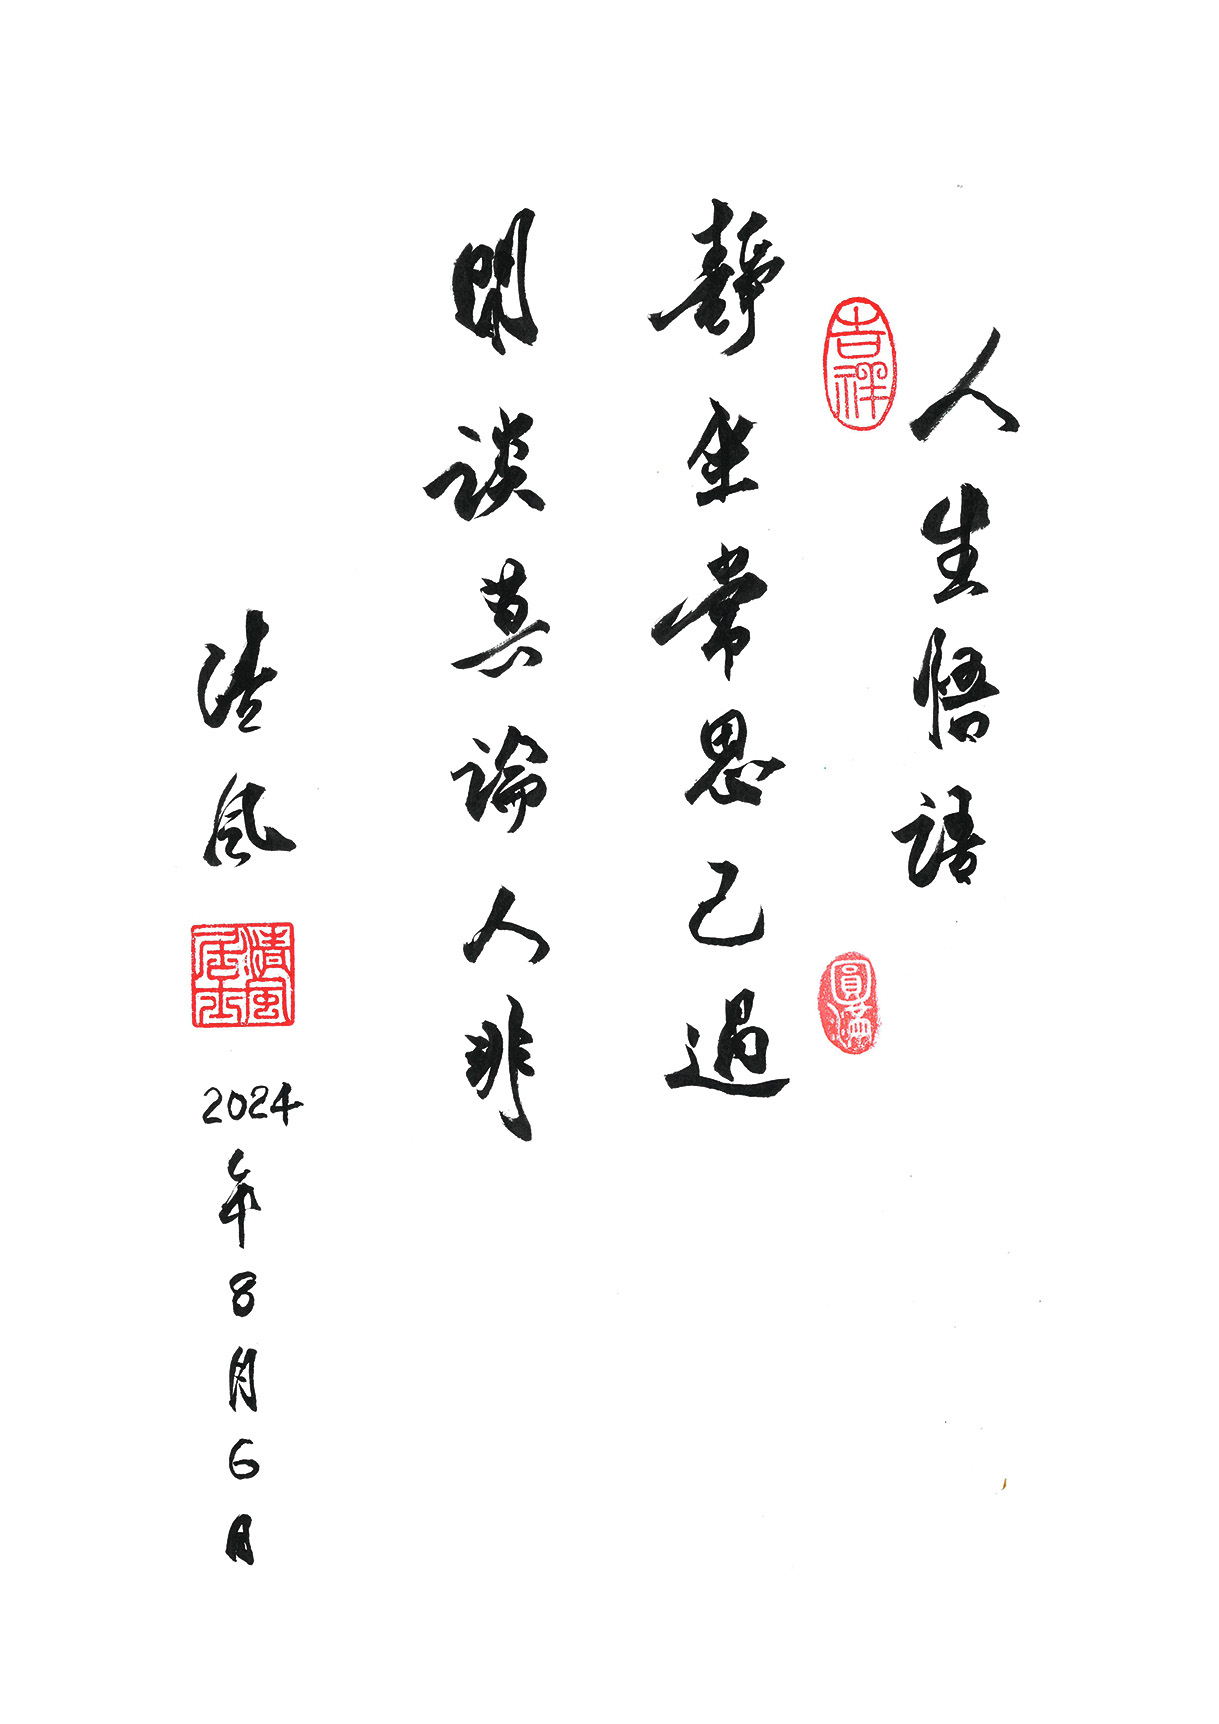 人生悟語
吉祥
圓滿
靜坐常思己過
閑談莫論人非
清風
清風居士
2024年8月6日